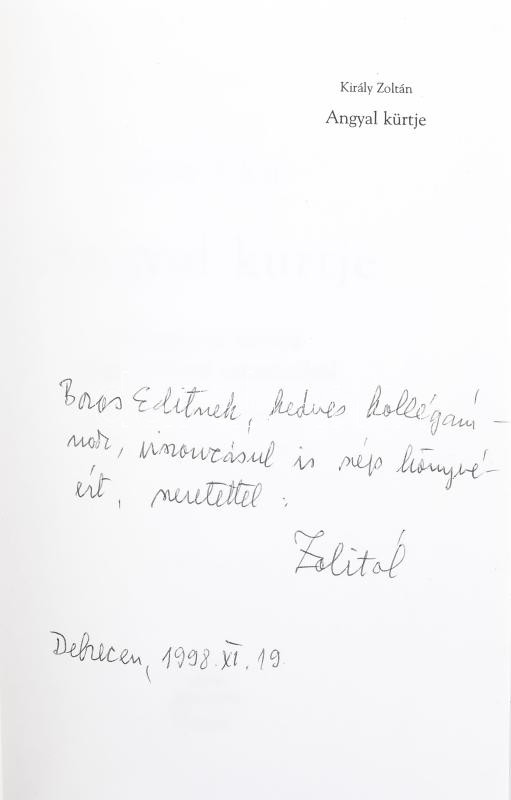 Király Zoltán
Angyal kürtje
Boros Editnek, kedves kollégám-
nak, viszonzásul is szép könyvé-
ért, szeretettel:
Zolitól
Debrecen, 1998. XI. 19.